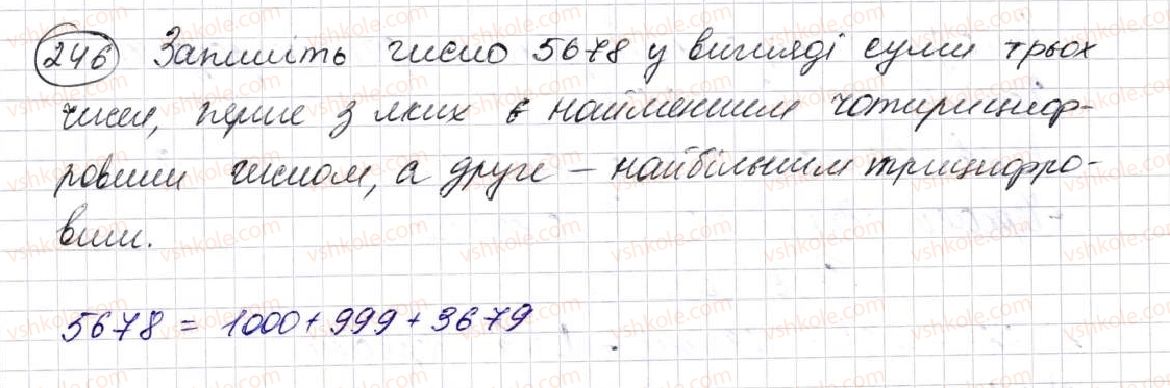 246 Запишіть число 5678 у вигляді суми трьох
чисел, перше з яких є найменшим чотирициф-
ровим числом, а друге – найбільшим трицифро-
вим.
5678 = 1000 + 999 + 3679